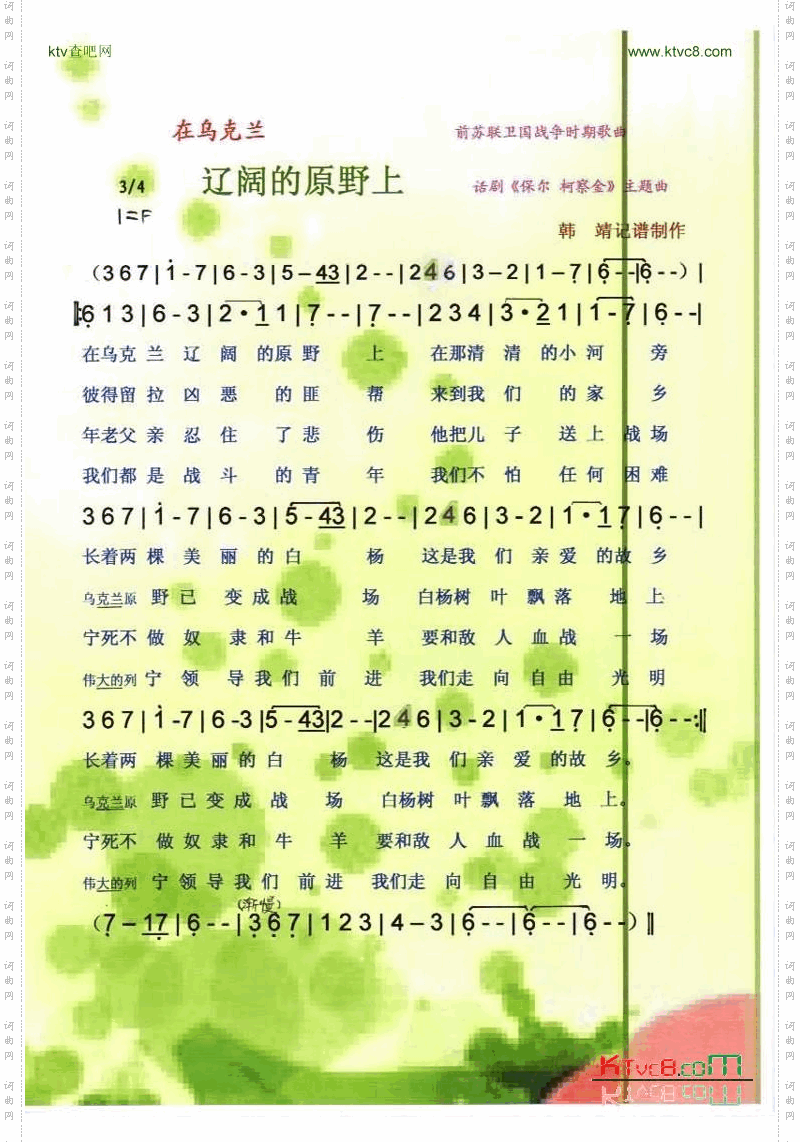 ktv查吧网 www.ktvc8.com
在乌克兰 前苏联卫国战争时期歌曲
3/4 辽阔的原野上 话剧《保尔 柯察金》主题曲
1=F
韩 靖记谱制作
(3 6 7 | i - 7 | 6 - 3 | 5 – 43 | 2 - - | 2 4 6 | 3 – 2 | 1 – 7̣ | 6̣ - - | 6̣ - - ) |
‖: 6̣ 1 3 | 6 - 3 | 2 • 1 1 | 7̣ - - | 7̣ - - | 2 3 4 | 3 • 2 1 | 1 - 7̣ | 6̣ - - |
在乌克 兰 辽 阔 的原 野 上 在那清 清 的小 河 旁
彼得留 拉 凶 恶 的 匪 帮 来到我 们 的 家 乡
年老父 亲 忍 住 了 悲 伤 他把儿 子 送 上 战场
我们都 是 战 斗 的 青 年 我们不 怕 任 何 困 难
3 6 7 | i - 7 | 6 - 3 | 5 - 43 | 2 - - | 2 4 6 | 3 - 2 | 1 • 1 7̣ | 6̣ - - |
长着两 棵 美 丽 的 白 杨 这是我 们 亲 爱 的故 乡
乌克兰原 野 已 变 成 战 场 白杨树 叶 飘 落 地 上
宁死不 做 奴 隶 和 牛 羊 要和敌 人 血 战 一 场
伟大的列 宁 领 导 我 们 前 进 我们走 向 自 由 光 明
3 6 7 | i - 7 | 6 - 3 | 5 - 43 | 2 - - | 2 4 6 | 3 - 2 | 1 • 1 7̣ | 6̣ - - | 6̣ - - :‖
长着两 棵 美 丽 的 白 杨 这是我 们 亲 爱 的故 乡。
乌克兰原 野 已 变 成 战 场 白杨树 叶 飘 落 地 上。
宁死不 做 奴 隶 和 牛 羊 要和敌 人 血 战 一 场。
伟大的列 宁 领 导 我 们 前 进 我们走 向 自 由 光 明。
(渐慢)
(7̣ – 17̣ | 6̣ - - | 3̣ 6̣ 7̣ | 1 2 3 | 4 – 3 | 6̣ - - | 6̣ - - | 6̣ - - ) ‖
KTvc8.com
词曲网